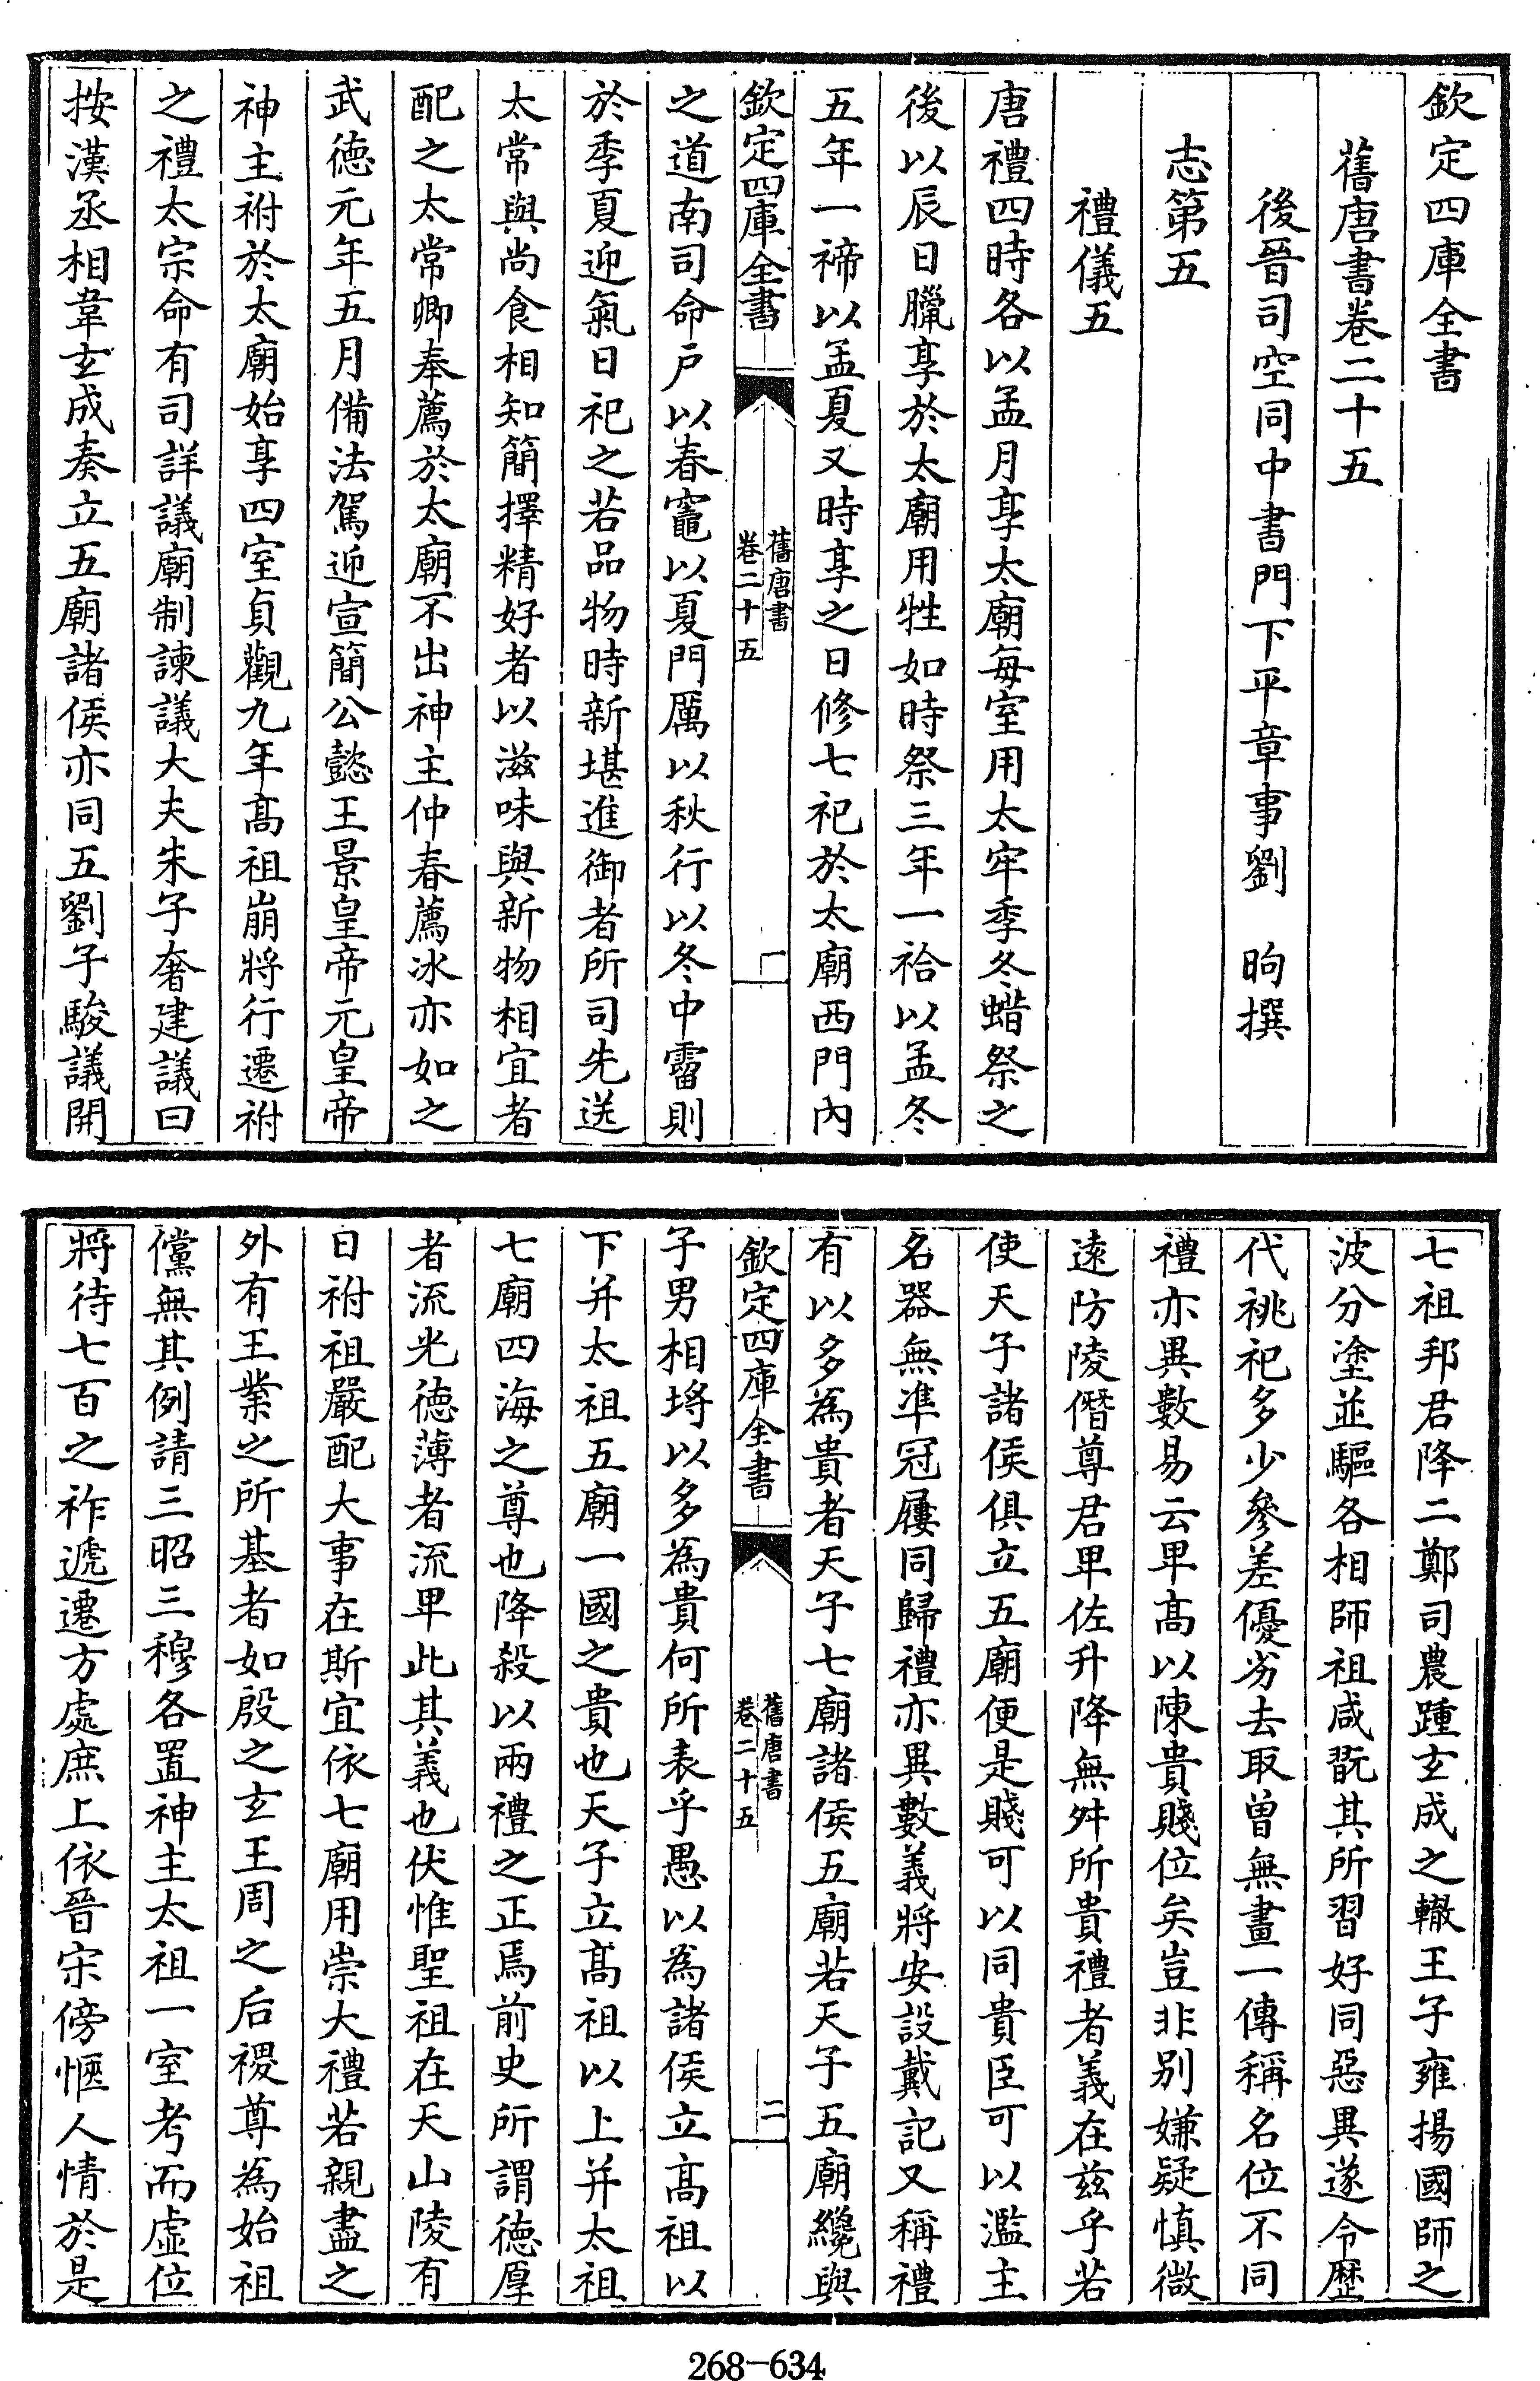 欽定四庫全書
舊唐書卷二十五
後晉司空同中書門下平章事劉　昫撰
志第五
禮儀五
唐禮四時各以孟月享太廟每室用太牢季冬蜡祭之
後以辰日臘享於太廟用牲如時祭三年一祫以孟冬
五年一禘以孟夏又時享之日修七祀於太廟西門內
欽定四庫全書
舊唐書
卷二十五
一
之道南司命戶以春竈以夏門厲以秋行以冬中霤則
於季夏迎氣日祀之若品物時新堪進御者所司先送
太常與尚食相知簡擇精好者以滋味與新物相宜者
配之太常卿奉薦於太廟不出神主仲春薦冰亦如之
武德元年五月備法駕迎宣簡公懿王景皇帝元皇帝
神主祔於太廟始享四室貞觀九年髙祖崩將行遷祔
之禮太宗命有司詳議廟制諫議大夫朱子奢建議曰
按漢丞相韋玄成奏立五廟諸侯亦同五劉子駿議開
七祖邦君降二鄭司農踵玄成之轍王子雍揚國師之
波分塗並驅各相師祖咸翫其所習好同惡異遂令歷
代祧祀多少參差優劣去取曽無畫一傳稱名位不同
禮亦異數易云卑髙以陳貴賤位矣豈非别嫌疑慎微
遠防陵僭尊君卑佐升降無舛所貴禮者義在兹乎若
使天子諸侯俱立五廟便是賤可以同貴臣可以濫主
名器無凖冠屨同歸禮亦異數義將安設戴記又稱禮
有以多為貴者天子七廟諸侯五廟若天子五廟纔與
欽定四庫全書
舊唐書
卷二十五
二
子男相埒以多為貴何所表乎愚以為諸侯立髙祖以
下并太祖五廟一國之貴也天子立髙祖以上并太祖
七廟四海之尊也降殺以兩禮之正焉前史所謂德厚
者流光德薄者流卑此其義也伏惟聖祖在天山陵有
日祔祖嚴配大事在斯宜依七廟用崇大禮若親盡之
外有王業之所基者如殷之玄王周之后稷尊為始祖
儻無其例請三昭三穆各置神主太祖一室考而虛位
將待七百之祚遞遷方處庶上依晉宋傍愜人情於是
268-634